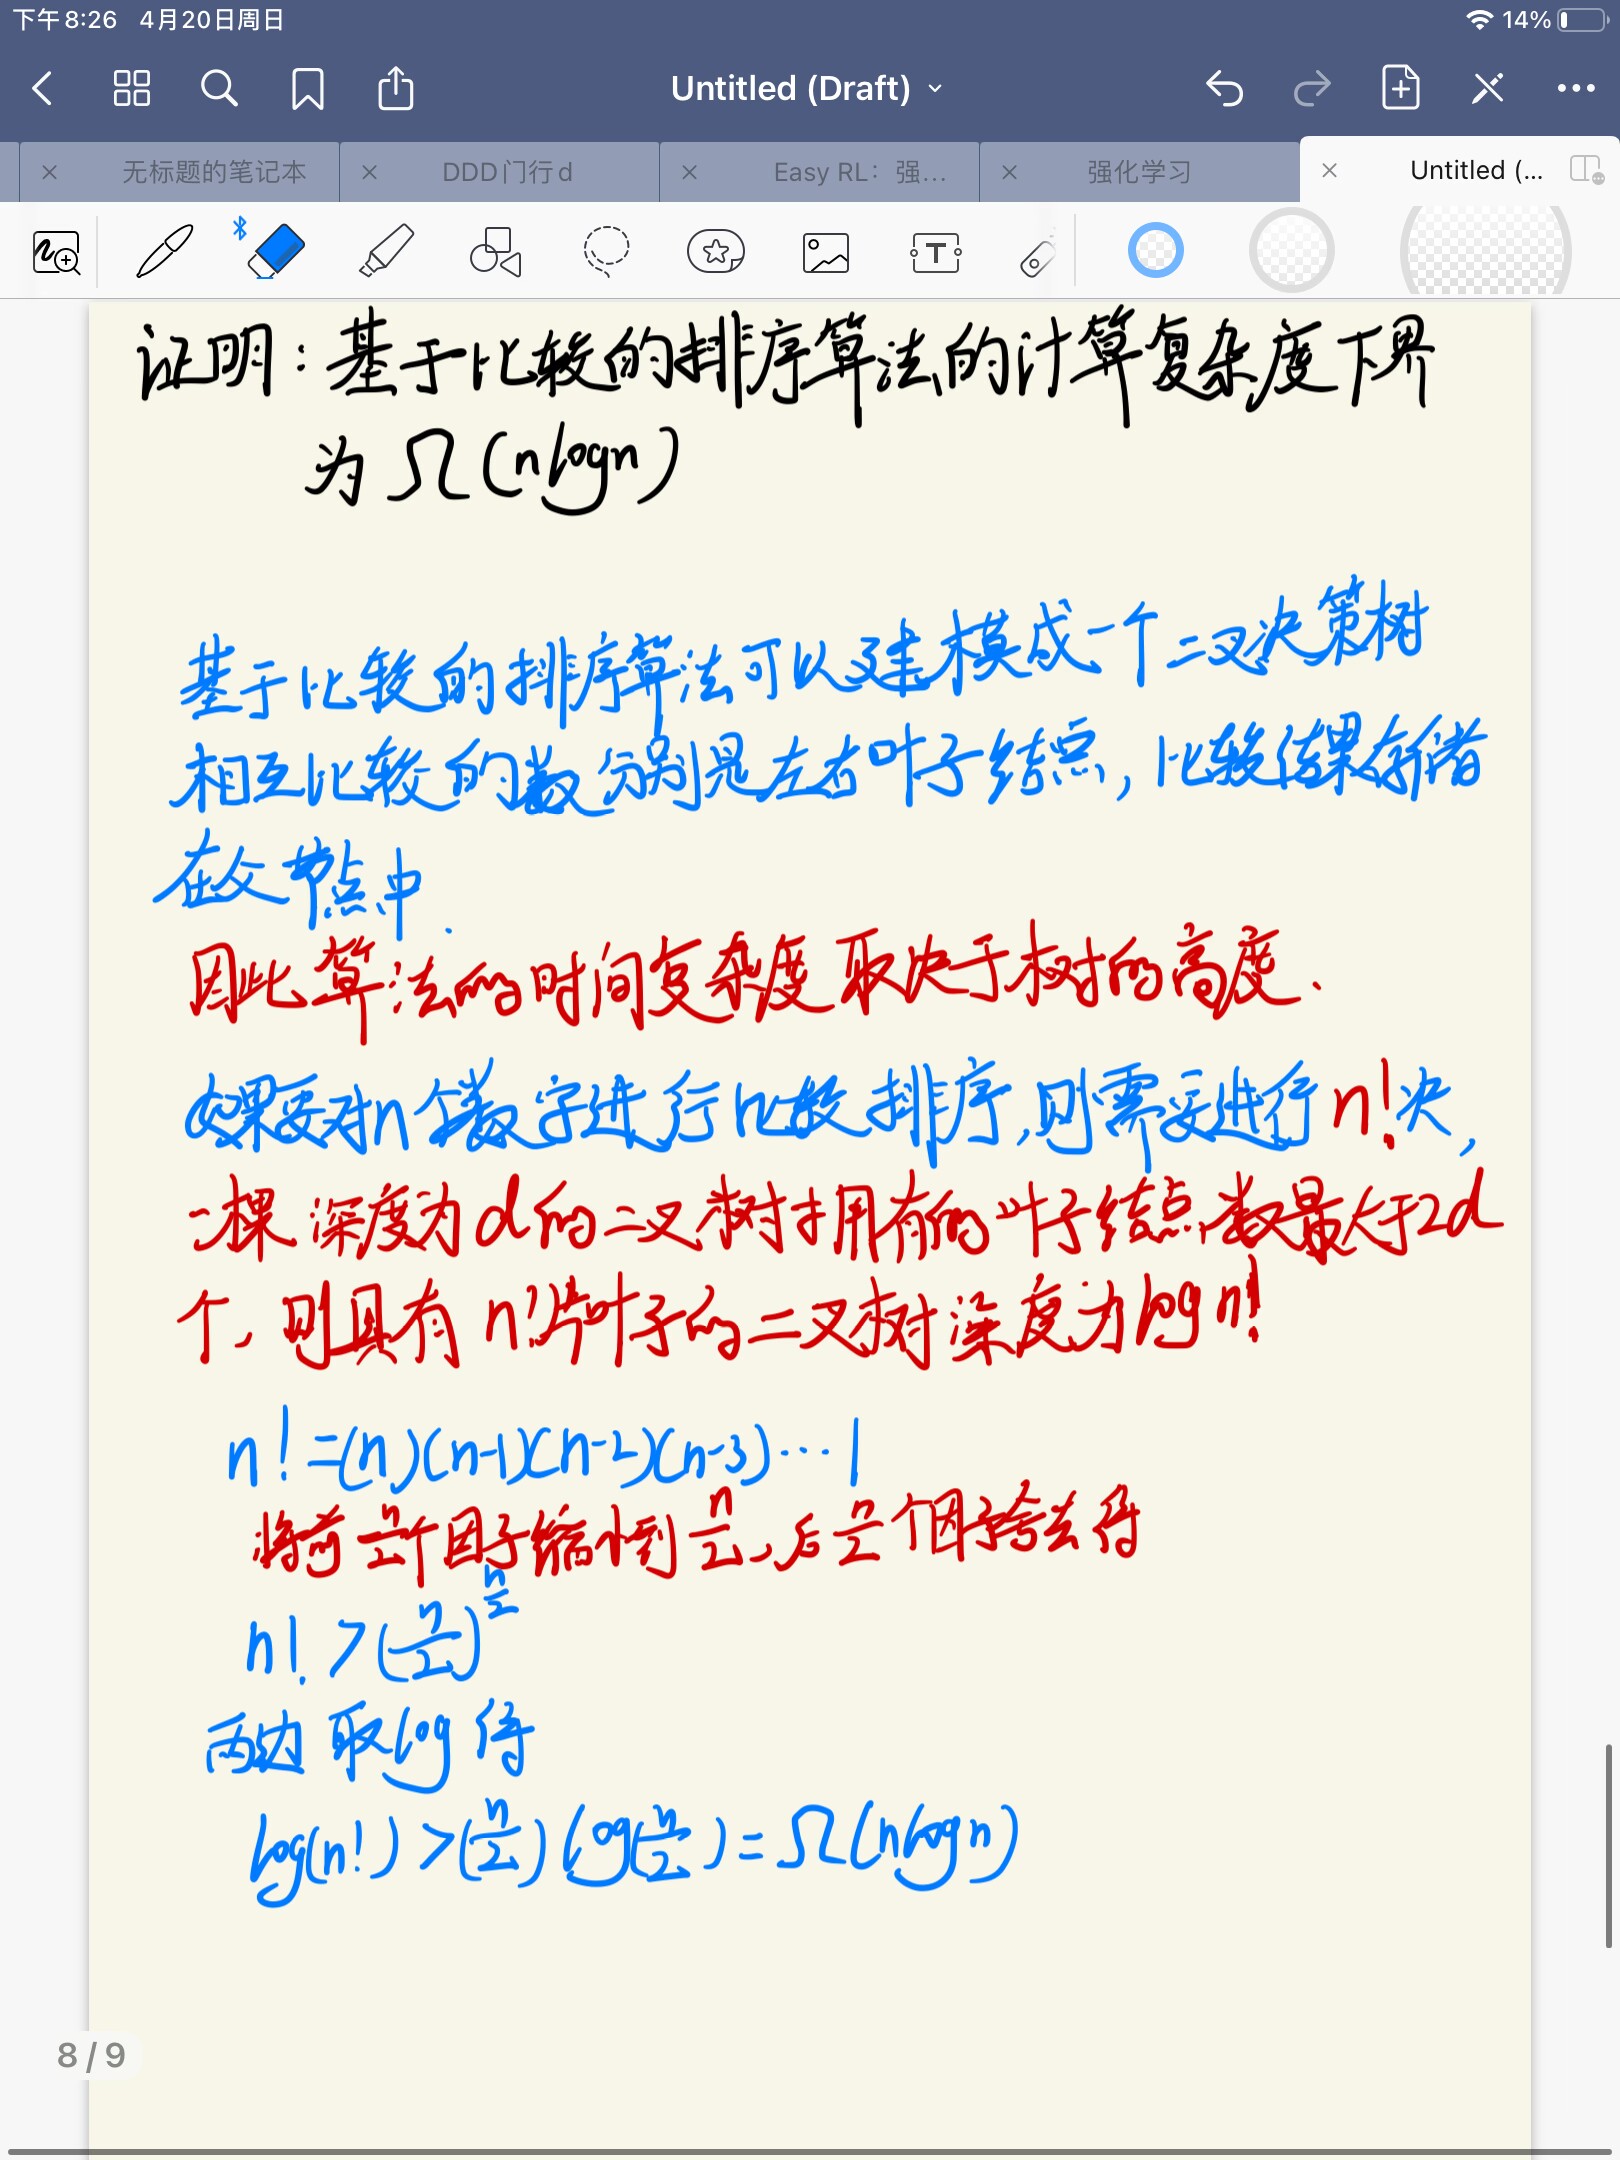 下午8:26 4月20日周日 14%
Untitled (Draft)
无标题的笔记本 DDD门行d Easy RL：强… 强化学习 Untitled (...
证明：基于比较的排序算法的计算复杂度下界
为 Ω(nlogn)
基于比较的排序算法可以建模成一个二叉决策树
相互比较的数分别是左右叶子结点，比较结果存储
在父节点中.
因此算法的时间复杂度取决于树的高度.
如果要对n个数字进行比较排序,则需要进行n!决,
一棵深度为d的二叉树拥有的叶子结点数量大于2d
个,则具有n!片叶子的二叉树深度为log n!
n!=(n)(n-1)(n-2)(n-3)…1
将前n/2个因子缩小到n/2,后n/2个因子舍去得
n! >(n/2)^n/2
两边取log得
log(n!)>(n/2)log(n/2)=Ω(nlogn)
8 / 9